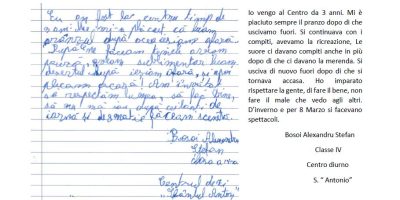 Eu am fost la centru timp de
ani. Mi-a plăcut că luam
prânzul după aceea ieșeam afară.
După ne făceam temele aveam
pauză, suplimentar luam
desertul după ieșeam afară, și apoi
plecam acasă. Am învățat
să respectăm lumea, să fac bine,
să nu mă iau după ceilalți de
iarnă și 8 martie făceam scenete.
Bosoi Alexandru
Ștefan
Centrul de zi
"Sfântul Anton"
Io vengo al Centro da 3 anni. Mi è
piaciuto sempre il pranzo dopo di che
uscivamo fuori. Si continuava con i
compiti, avevamo la ricreazione, Le
suore ci davano compiti anche in più
dopo di che ci davano la merenda. Si
usciva di nuovo fuori dopo di che si
tornava accasa. Ho imparato
rispettare la gente, di fare il bene, non
fare il male che vedo agli altri.
D'inverno e per 8 Marzo si facevano
spettacoli.
Bosoi Alexandru Stefan
Classe IV
Centro diurno
S. " Antonio"